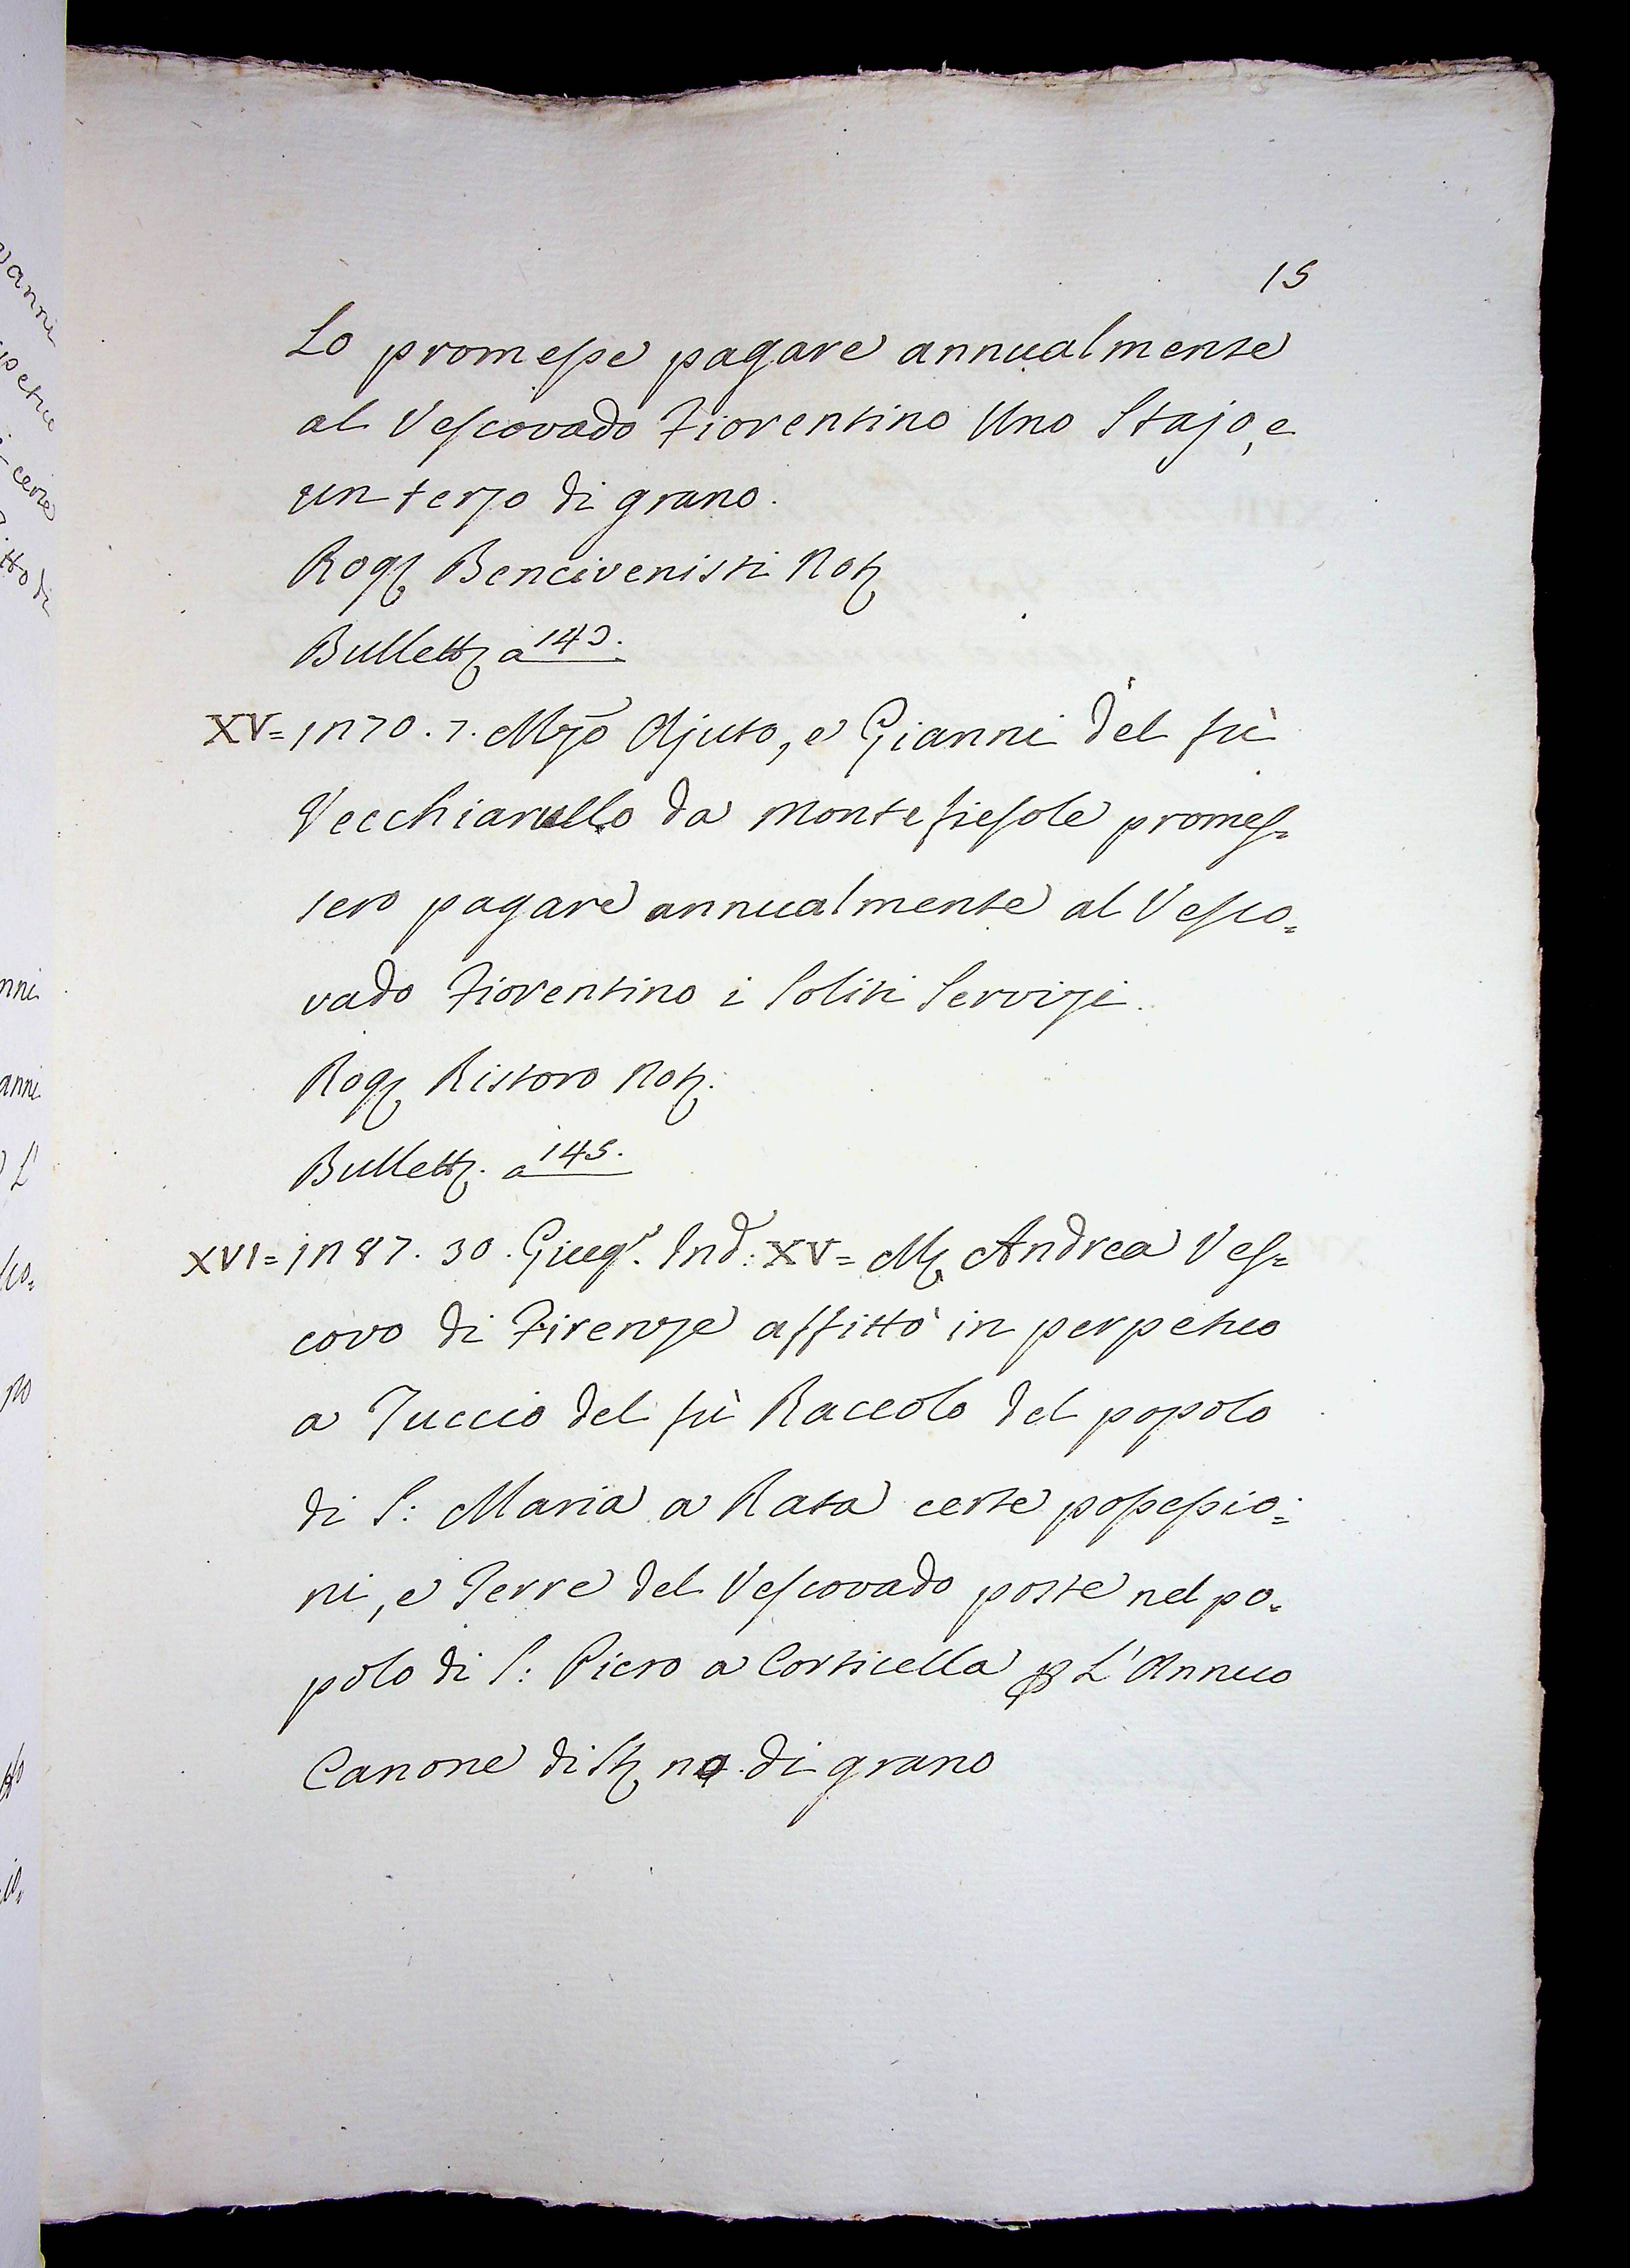 15
Lo promesse pagare annualmente
al Vescovado Fiorentino Uno Stajo, e
un terzo di grano.
Rog. Bencivenisti Not.
Bullett. a 143.
XV= 1270. 7. Mzo Ajuto, e Gianni del fù
Vecchiarello da Montefiesole promes=
sero pagare annualmente al Vesco=
vado Fiorentino i Soliti Servizi.
Rog. Ristoro Not.
Bullett. a 145.
XVI= 1287. 30. Giug. Ind: XV= M. Andrea Ves=
covo di Firenze affittò in perpetuo
a Tuccio del fù Raccolo del popolo
di S: Maria a Rata certe possessio=
ni, e Terre del Vescovado poste nel po=
polo di S: Piero a Corticella p L'Annuo
Canone di St. di grano